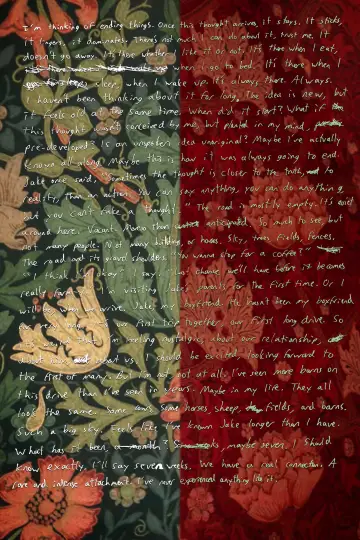 I'm thinking of ending things. Once this thought arrives, it stays. It sticks,
it lingers, it dominates. There's not much I can do about it, trust me. It
doesn't go away. It's there whether I like it or not. It's there when I eat,
when I go to bed. It's there when I
sleep, when I wake up. It's always there. Always.
I haven't been thinking about it for long. The idea is new, but
it feels old at the same time. When did it start? What if
this thought wasn't conceived by me, but in my mind,
pre-developed? Is an unspoken idea unoriginal? Maybe I've actually
known all along. Maybe this is how it was always going to end.
Jake once said, "Sometimes the thought is closer to the truth, to
reality, than an action. You can say anything, you can do anything,
but you can't fake a thought." The road is mostly empty. It's quiet
around here. Vacant. More than anticipated. So much to see, but
not many people. Not many buildings, or houses. Sky, trees, fields, fences,
The road and its gravel shoulders. "You wanna stop for a coffee?"
"I think I'm okay," I say. "Last chance we'll have before it becomes
really farmy." I'm visiting Jake's parents for the first time. Or I
will be when we arrive. Jake, my boyfriend. He hasn't been my boyfriend
very long. It's our first trip together, our first long drive. So
that I'm feeling nostalgic, about our relationship,
about us. I should be excited, looking forward to
the first of many. But I'm not. Not at all. I've seen more barns on
this drive than I've seen in years. Maybe in my life. They all
look the same. Some cows, some horses. Sheep, fields, and barns.
Such a big sky. Feels like I've known Jake longer than I have.
What has it been, a month? maybe seven. I should
know exactly. I'll say seven weeks. We have a real connection. A
rare and intense attachment. I've never experienced anything like it.